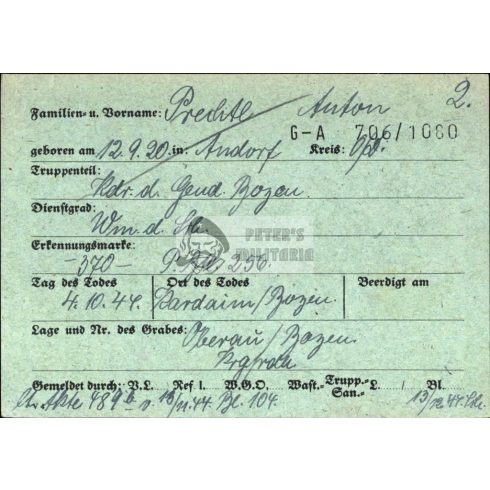 2.
Familien- u. Vorname: Prechtl Anton
G-A 706/1080
geboren am 12.9.20 in: Andorf Kreis:
Truppenteil:
Kdr. d. Gend. Bozen.
Dienstgrad:
Wm. d. Sch.
PETER'S
MILITARIA
Erkennungsmarke:
-370- 256.
Tag des Todes Ort des Todes Beerdigt am
4.10.44. Pardaim/Bozen.
Lage und Nr. des Grabes: Oberau/Bozen.
Gemeldet durch: V.L. Ref I. W.G.O. Wast.- Trupp.- San.- L. / Bl.
Akte 489 b v. 13/11.44. Bl. 104. 13/12.44.